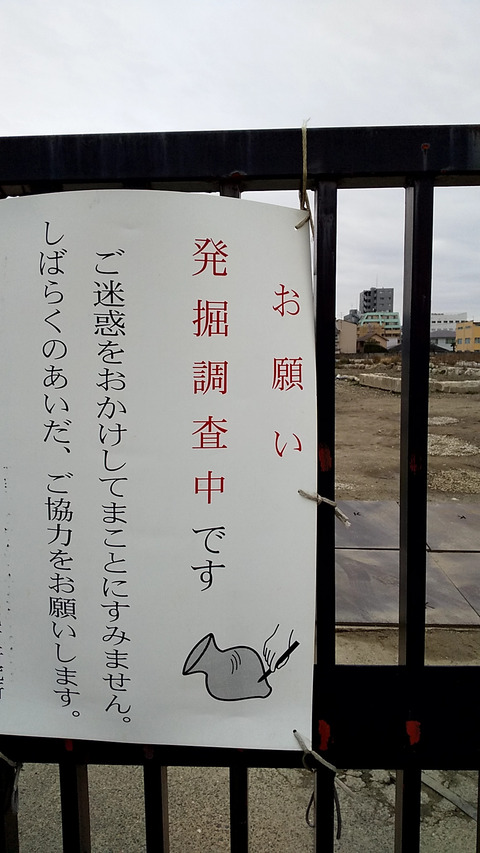 お願い
発掘調査中です
ご迷惑をおかけしてまことにすみません。
しばらくのあいだ、ご協力をお願いします。